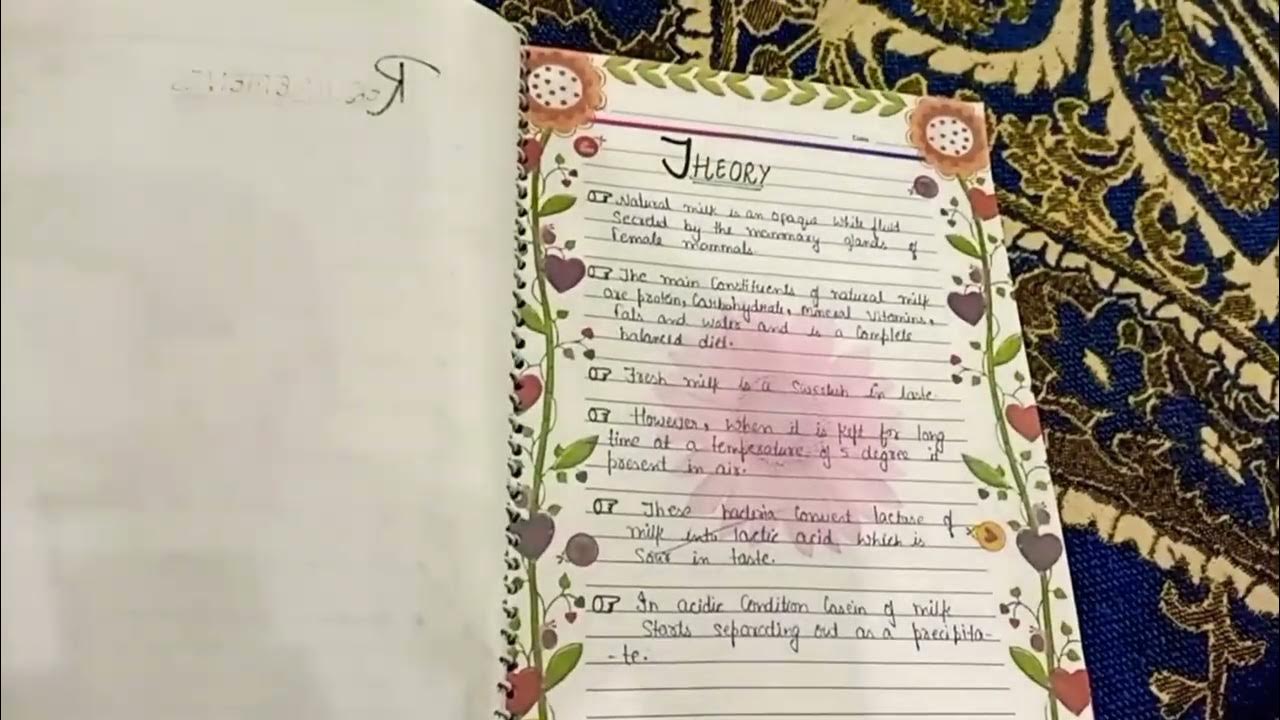 Requirements
Date
THEORY
Natural milk is an opaque white fluid
Secreted by the mammary glands of
female mammals.
The main Constituents of natural milk
are protein, Carbohydrate, mineral vitamins,
fats and water and is a Complete
balanced diet.
Fresh milk is a Sweetish in taste.
However, when it is kept for long
time at a temperature of 5 degree it
present in air.
These bacteria Convert lactose of
milk into lactic acid which is
Sour in taste.
In acidic Condition Casein of milk
Starts separating out as a precipita-
-te.